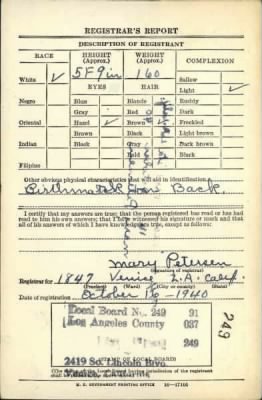 REGISTRAR'S REPORT
DESCRIPTION OF REGISTRANT
RACE HEIGHT (Approx.) WEIGHT (Approx.) COMPLEXION
White ✓ 5 F 9 in 160 Sallow
EYES HAIR Light ✓
Negro Blue Blonde Ruddy
Gray Red Dark
Oriental Hazel ✓ Brown Freckled
Brown Black Light brown
Indian Black Gray Dark brown
Bald Black
Filipino
Other obvious physical characteristics that will aid in identification
Birthmark on Back.
I certify that my answers are true; that the person registered has read or has had
read to him his own answers; that I have witnessed his signature or mark and that
all of his answers of which I have knowledge are true, except as follows:
Mary Petersen
(Signature of registrar)
Registrar for 1847 Venice L.A. Calif.
Date of registration October 16 - 1940
Local Board No. 249 91
Los Angeles County 037
249
2419 So. Lincoln Blvd.
Venice, California
(STAMP OF LOCAL BOARD)
249
U. S. GOVERNMENT PRINTING OFFICE 16—17105